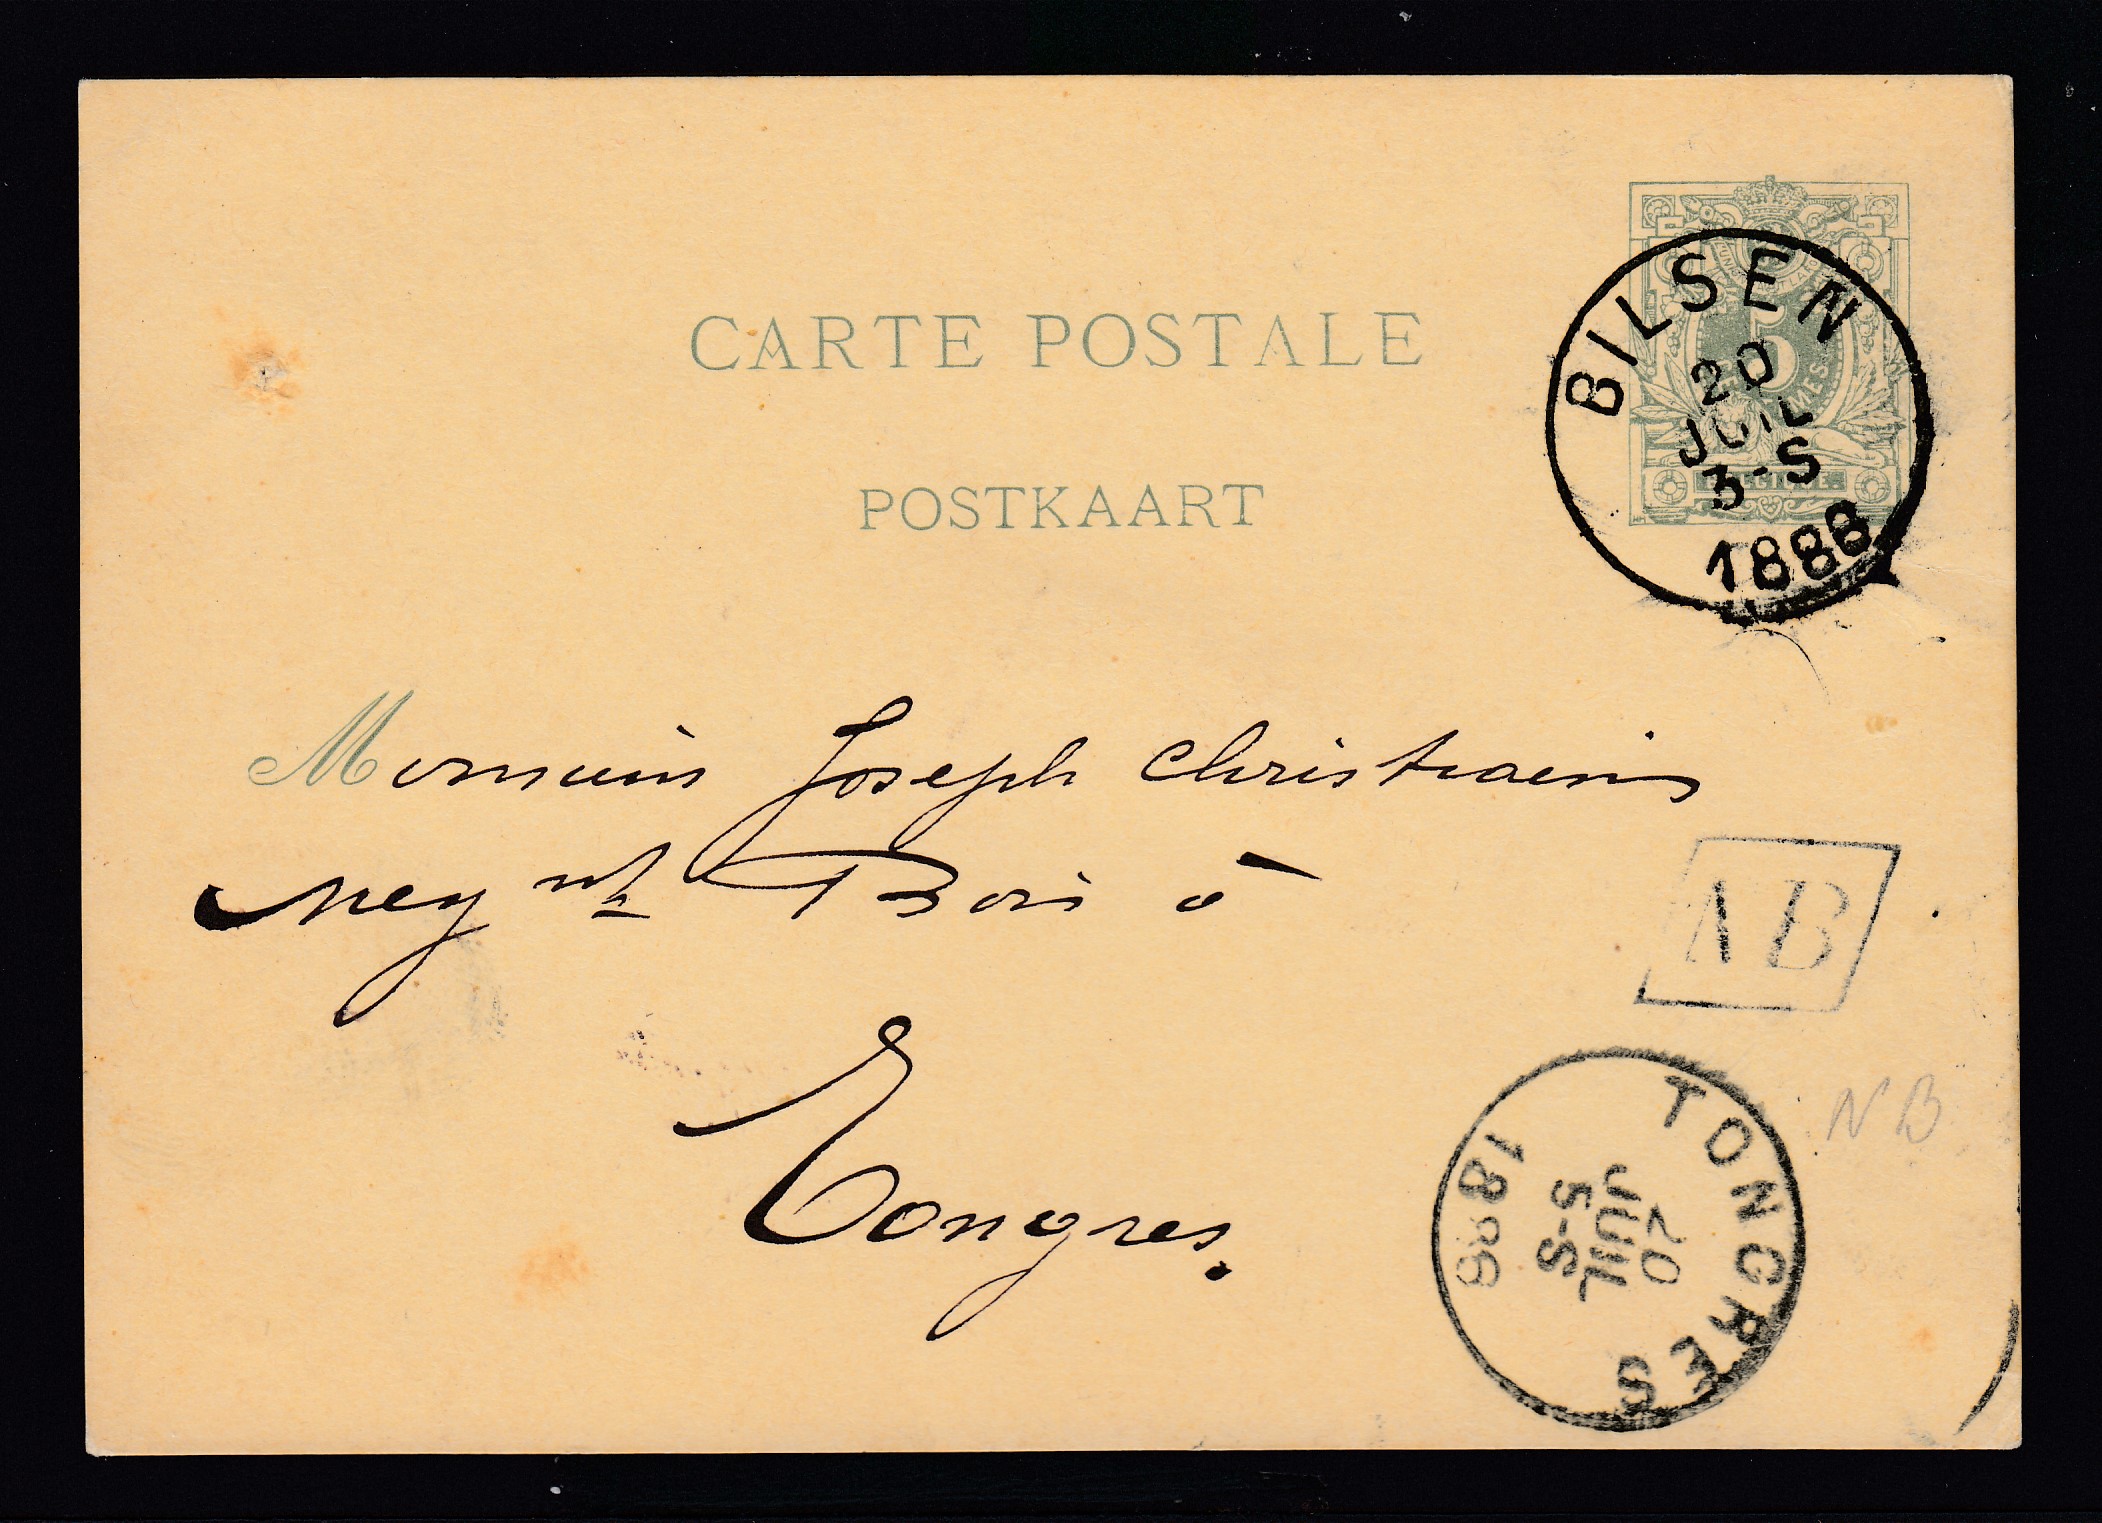 CARTE POSTALE
POSTKAART
BILSEN
20
JUIL
3-S
1888
5
Monsieur Joseph Christiaens
Neg nt Bois à
Tongres.
NB
TONGRES
20
JUIL
5-S
1888
NB